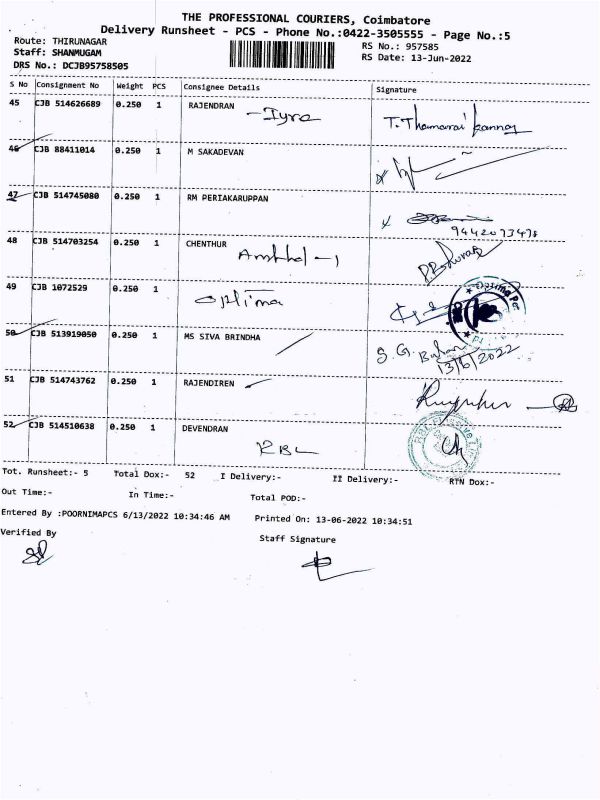 THE PROFESSIONAL COURIERS, Coimbatore
Delivery Runsheet - PCS - Phone No.:0422-3505555 - Page No.:5
Route: THIRUNAGAR
Staff: SHANMUGAM
DRS No.: DCJB95758505
RS No.: 957585
RS Date: 13-Jun-2022
S No Consignment No Weight PCS Consignee Details Signature
45 CJB 514626689 0.250 1 RAJENDRAN
T. Thamarai kannan
46 CJB 88411014 0.250 1 M SAKADEVAN
47 CJB 514745080 0.250 1 RM PERIAKARUPPAN
9442073478
48 CJB 514703254 0.250 1 CHENTHUR
49 CJB 1072529 0.250 1
Optima
50 CJB 513919050 0.250 1 MS SIVA BRINDHA
S. G.
13/6/2022
51 CJB 514743762 0.250 1 RAJENDIREN
52 CJB 514510638 0.250 1 DEVENDRAN
RBL
Tot. Runsheet:- 5 Total Dox:- 52 I Delivery:- II Delivery:- RTN Dox:-
Out Time:- In Time:- Total POD:-
Entered By :POORNIMAPCS 6/13/2022 10:34:46 AM Printed On: 13-06-2022 10:34:51
Verified By Staff Signature